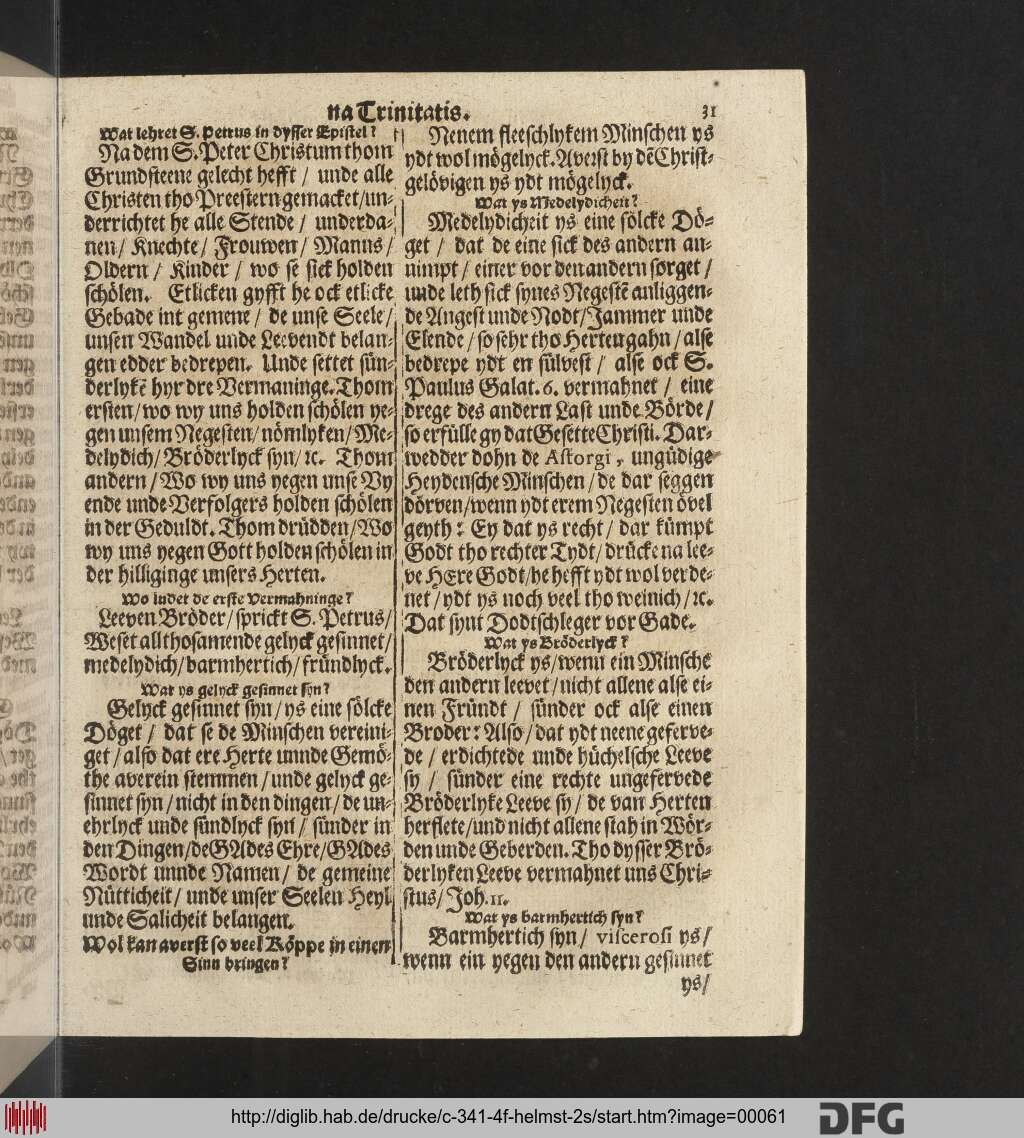 na Trinitatis. 31
Wat lehret S. Petrus in dysser Epistel?
Na dem S. Peter Christum thom
Grundsteene gelecht hefft / unde alle
Christen tho Preestern gemacket/un-
derrichtet he alle Stende / underda-
nen / Knechte / Frouwen / Manns /
Oldern / Kinder / wo se sick holden
schölen. Etlicken gyfft he ock etlicke
Gebade int gemene / de unse Seele /
unsen Wandel unde Leevendt belan-
gen edder bedrepen. Unde settet sün-
derlykē hyr dre Vermaninge. Thom
ersten / wo wy uns holden schölen ye-
gen unsem Negesten / nömlyken / Me-
delydich / Bröderlyck syn / ꝛc. Thom
andern / Wo wy uns yegen unse Vy
ende unde Verfolgers holden schölen
in der Geduldt. Thom drüdden / Wo
wy uns yegen Gott holden schölen in
der hilliginge unsers Herten.
Wo ludet de erste Vermahninge?
Leeven Bröder / sprickt S. Petrus /
Weset allthosamende gelyck gesinnet /
medelydich / barmhertich / fründlyck.
Wat ys gelyck gesinnet syn?
Gelyck gesinnet syn / ys eine sölcke
Döget / dat se de Minschen vereini-
get / also dat ere Herte unnde Gemö-
the averein stemmen / unde gelyck ge-
sinnet syn / nicht in den dingen / de un-
ehrlyck unde sündlyck syn / sünder in
den Dingen / de GAdes Ehre / GAdes
Wordt unnde Namen / de gemeine
Nütticheit / unde unser Seelen Heyl
unde Salicheit belangen.
Wol kan averst so veel Köppe in einen
Sinn bringen?
Nenem fleeschlykem Minschen ys
ydt wol mögelyck. Averst by dē Christ-
gelövigen ys ydt mögelyck.
Wat ys Medelydicheit?
Medelydicheit ys eine sölcke Dö-
get / dat de eine sick des andern an-
nimpt / einer vor den andern sorget /
unde leth sick synes Negestē anliggen-
de Angest unde Nodt / Jammer unde
Elende / so sehr tho Herten gahn / alse
bedrepe ydt en sülvest / alse ock S.
Paulus Galat. 6. vermahnet / eine
drege des andern Last unde Börde /
so erfülle gy dat Gesette Christi. Dar-
wedder dohn de Astorgi, ungüdige
Heydensche Minschen / de dar seggen
dörven / wenn ydt erem Negesten övel
geyth: Ey dat ys recht / dar kümpt
Godt tho rechter Tydt / drücke na lee-
ve HEre Godt / he hefft ydt wol verde-
net / ydt ys noch veel tho weinich / ꝛc.
Dat synt Dodtschleger vor Gade.
Wat ys Bröderlyck?
Bröderlyck ys / wenn ein Minsche
den andern leevet / nicht allene alse ei-
nen Fründt / sünder ock alse einen
Broder: Also / dat ydt neene geferve-
de / erdichtede unde hüchelsche Leeve
sy / sünder eine rechte ungefervede
Bröderlyke Leeve sy / de van Herten
herflete / und nicht allene stah in Wör-
den unde Geberden. Tho dysser Brö-
derlyken Leeve vermahnet uns Chri-
stus / Joh. 11.
Wat ys barmhertich syn?
Barmhertich syn / viscerosi ys /
wenn ein yegen den andern gesinnet
ys /
http://diglib.hab.de/drucke/c-341-4f-helmst-2s/start.htm?image=00061
DFG